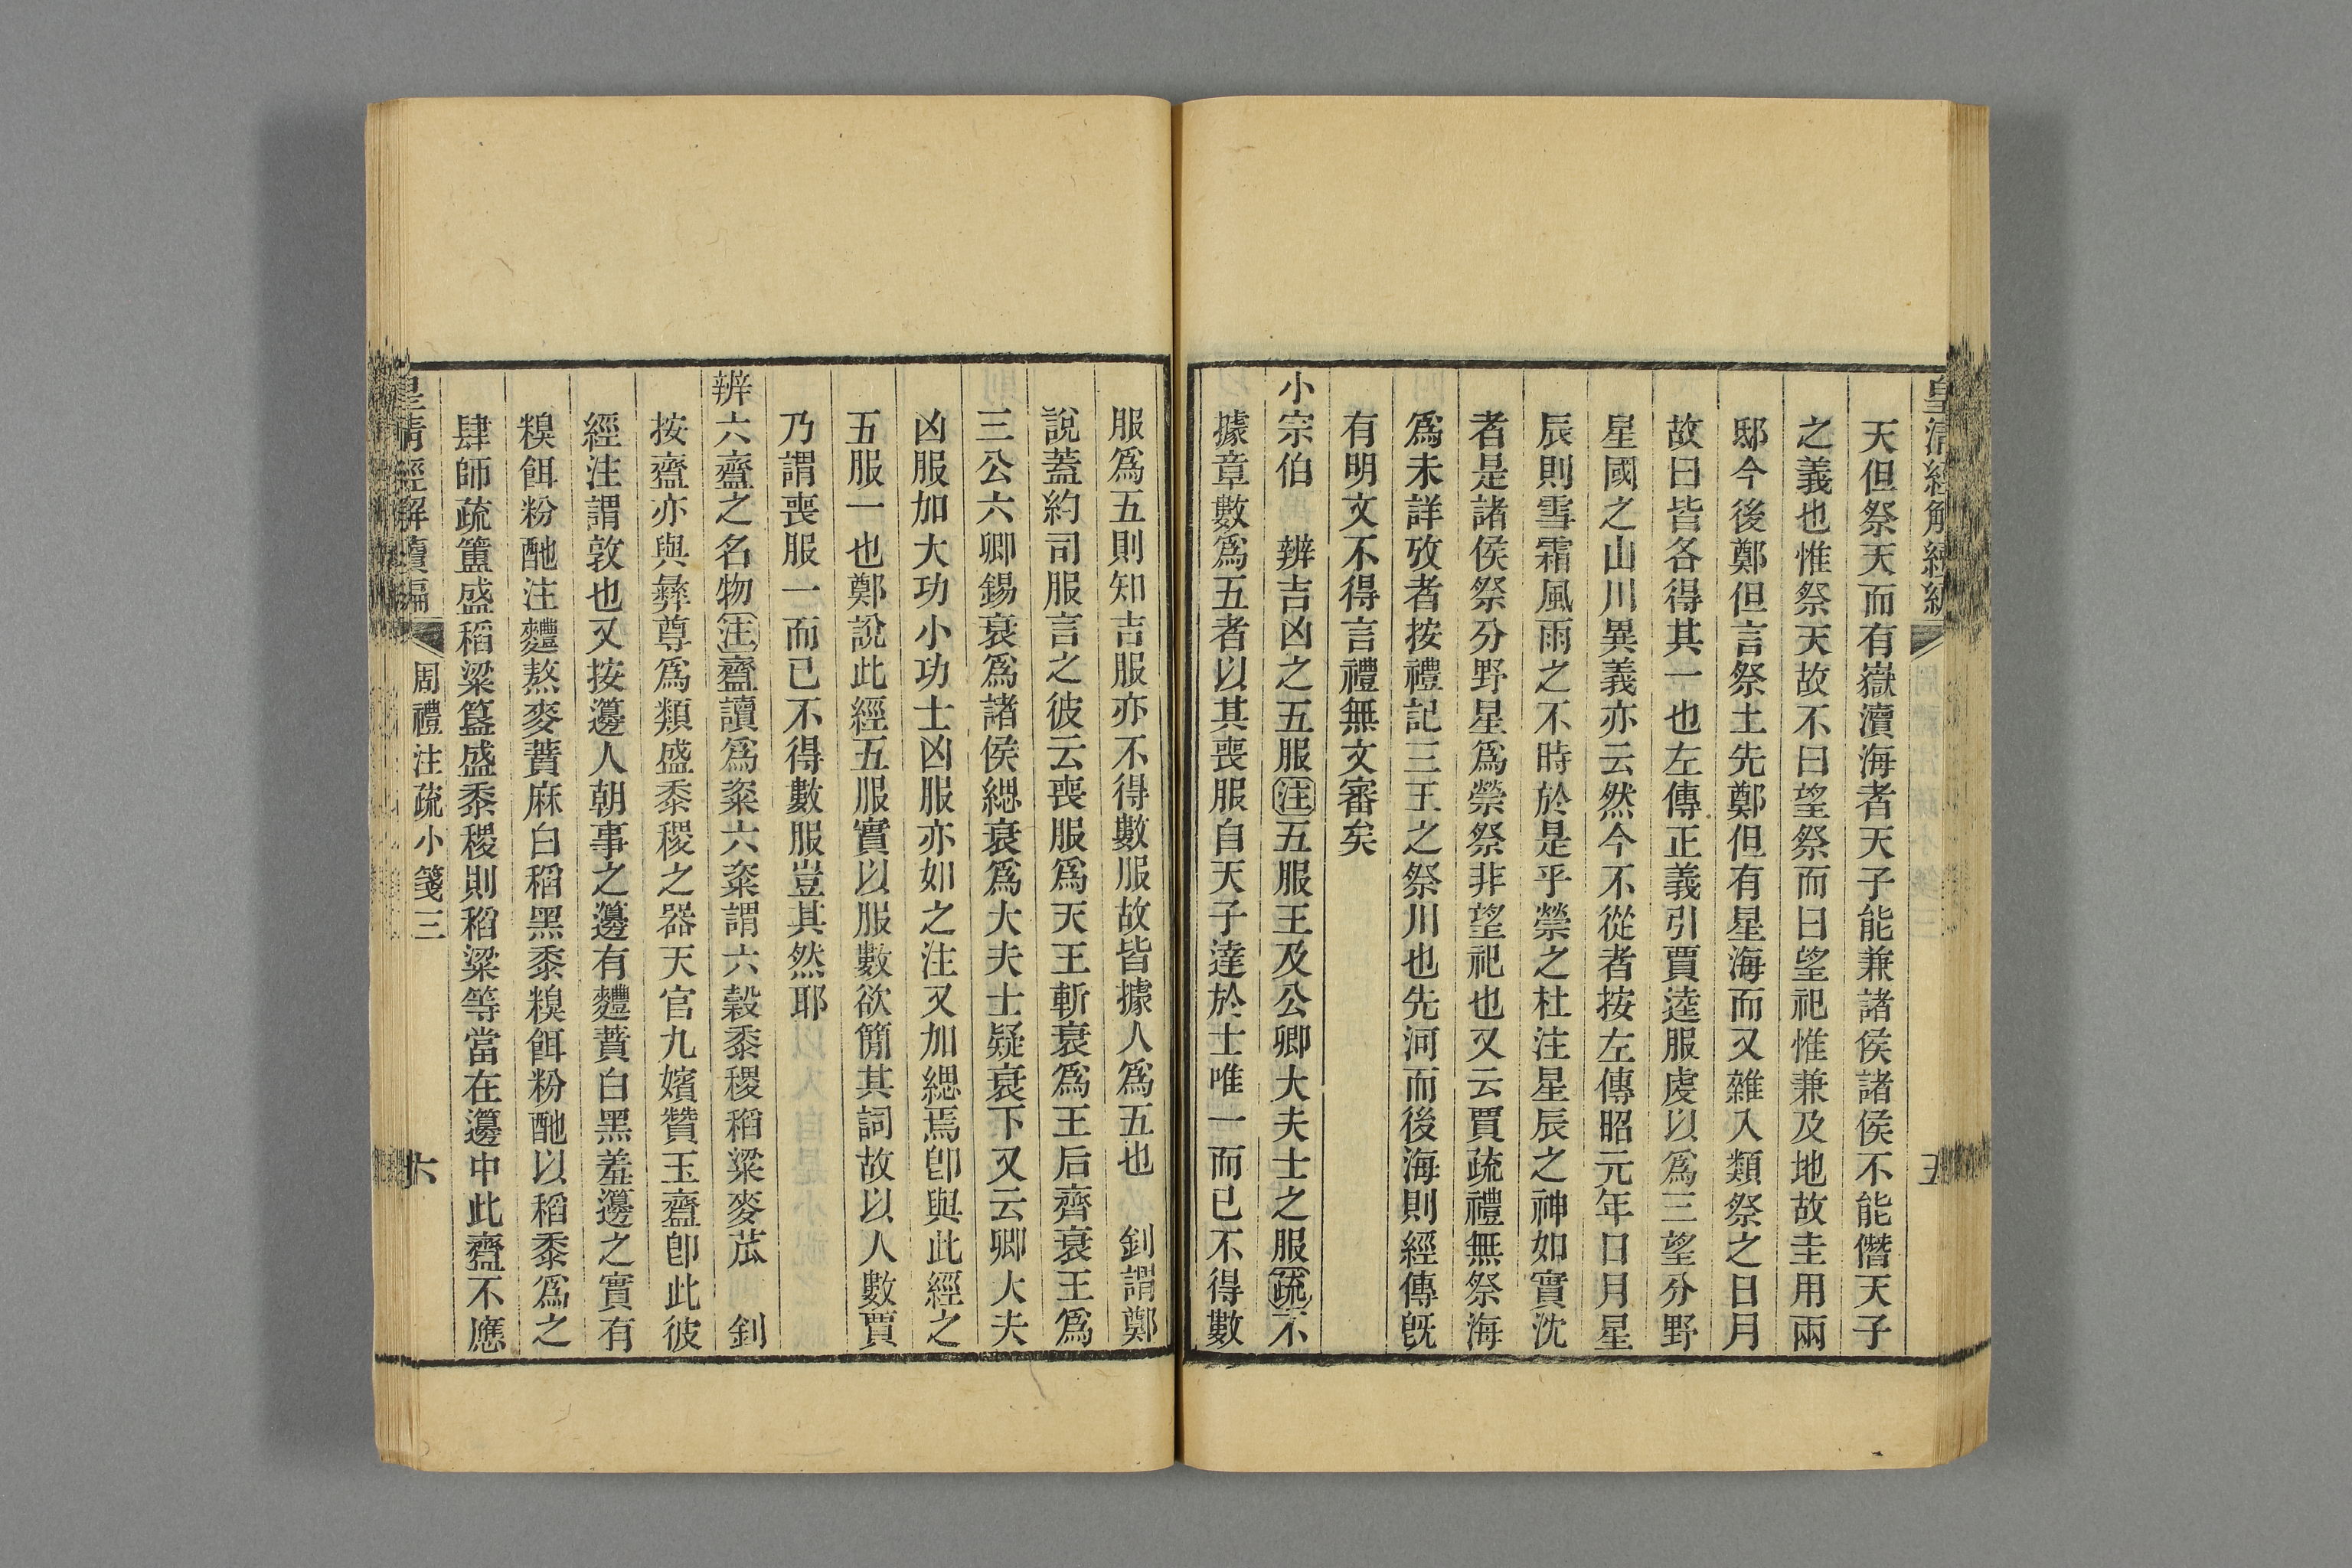 天但祭天而有嶽瀆海者天子能兼諸侯諸侯不能僭天子
之義也惟祭天故不曰望祭而曰望祀惟兼及地故圭用兩
邸今後鄭但言祭土先鄭但有星海而又雜入類祭之日月
故曰皆各得其一也左傳正義引賈逵服虔以爲三望分野
星國之山川異義亦云然今不從者按左傳昭元年日月星
辰則雪霜風雨之不時於是乎禜之杜注星辰之神如實沈
者是諸侯祭分野星爲禜祭非望祀也又云賈疏禮無祭海
爲未詳攷者按禮記三王之祭川也先河而後海則經傳旣
有明文不得言禮無文審矣
小宗伯　辨吉凶之五服注五服王及公卿大夫士之服疏不
據章數爲五者以其喪服自天子達於士唯一而已不得數
服爲五則知吉服亦不得數服故皆據人爲五也　釗謂鄭
說蓋約司服言之彼云喪服爲天王斬衰爲王后齊衰王爲
三公六卿錫衰爲諸侯緦衰爲大夫士疑衰下又云卿大夫
凶服加大功小功士凶服亦如之注又加緦焉卽與此經之
五服一也鄭說此經五服實以服數欲簡其詞故以人數賈
乃謂喪服一而已不得數服豈其然耶
辨六齍之名物注齍讀爲粢六粢謂六穀黍稷稻粱麥苽　釗
按齍亦與彝尊爲類盛黍稷之器天官九嬪贊玉齍卽此彼
經注謂敦也又按籩人朝事之籩有麷蕡白黑羞籩之實有
糗餌粉酏注麷熬麥蕡麻白稻黑黍糗餌粉酏以稻黍爲之
肆師疏簠盛稻粱簋盛黍稷則稻粱等當在籩中此齍不應
皇清經解續編　周禮注疏小箋三　六